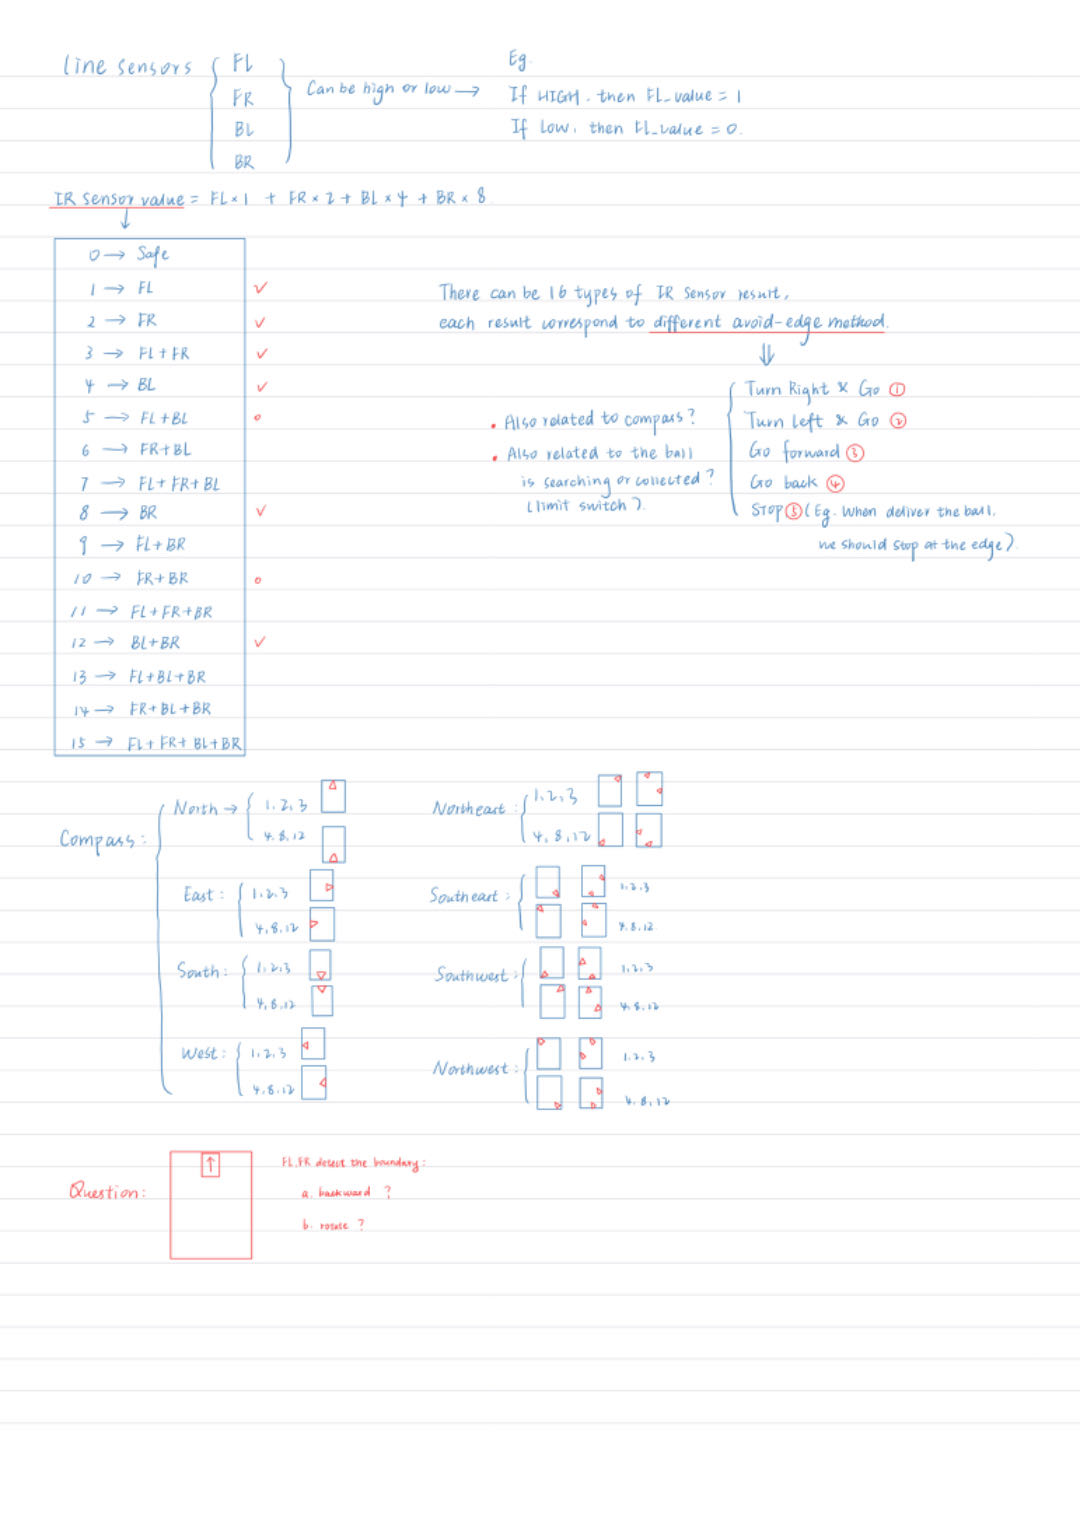 line sensors { FL FR BL BR } Can be high or low →
Eg.
If HIGH, then FL_value = 1
If low, then FL_value = 0.
IR Sensor value = FL×1 + FR×2 + BL×4 + BR×8
↓
0 → Safe
1 → FL ✓
2 → FR ✓
3 → FL+FR ✓
4 → BL ✓
5 → FL+BL o
6 → FR+BL
7 → FL+FR+BL
8 → BR ✓
9 → FL+BR
10 → FR+BR o
11 → FL+FR+BR
12 → BL+BR ✓
13 → FL+BL+BR
14 → FR+BL+BR
15 → FL+FR+BL+BR
There can be 16 types of IR Sensor result,
each result correspond to different avoid-edge method.
⇓
Turn Right & Go ①
Turn left & Go ②
Go forward ③
Go back ④
STOP ⑤ (Eg. When deliver the ball,
we should stop at the edge).
• Also related to compass?
• Also related to the ball
is searching or collected?
(limit switch).
Compass:
North → 1, 2, 3
4. 8. 12
East: 1. 2. 3
4, 8, 12
South: 1, 2, 3
4, 8, 12
West: 1. 2. 3
4, 8, 12
Northeast: 1, 2, 3
4, 8, 12
Southeast: 1, 2, 3
4. 8. 12
Southwest: 1, 2, 3
4, 8, 12
Northwest: 1. 2. 3
4. 8. 12
Question:
↑
FL, FR detect the boundary:
a. backward ?
b. rotate ?